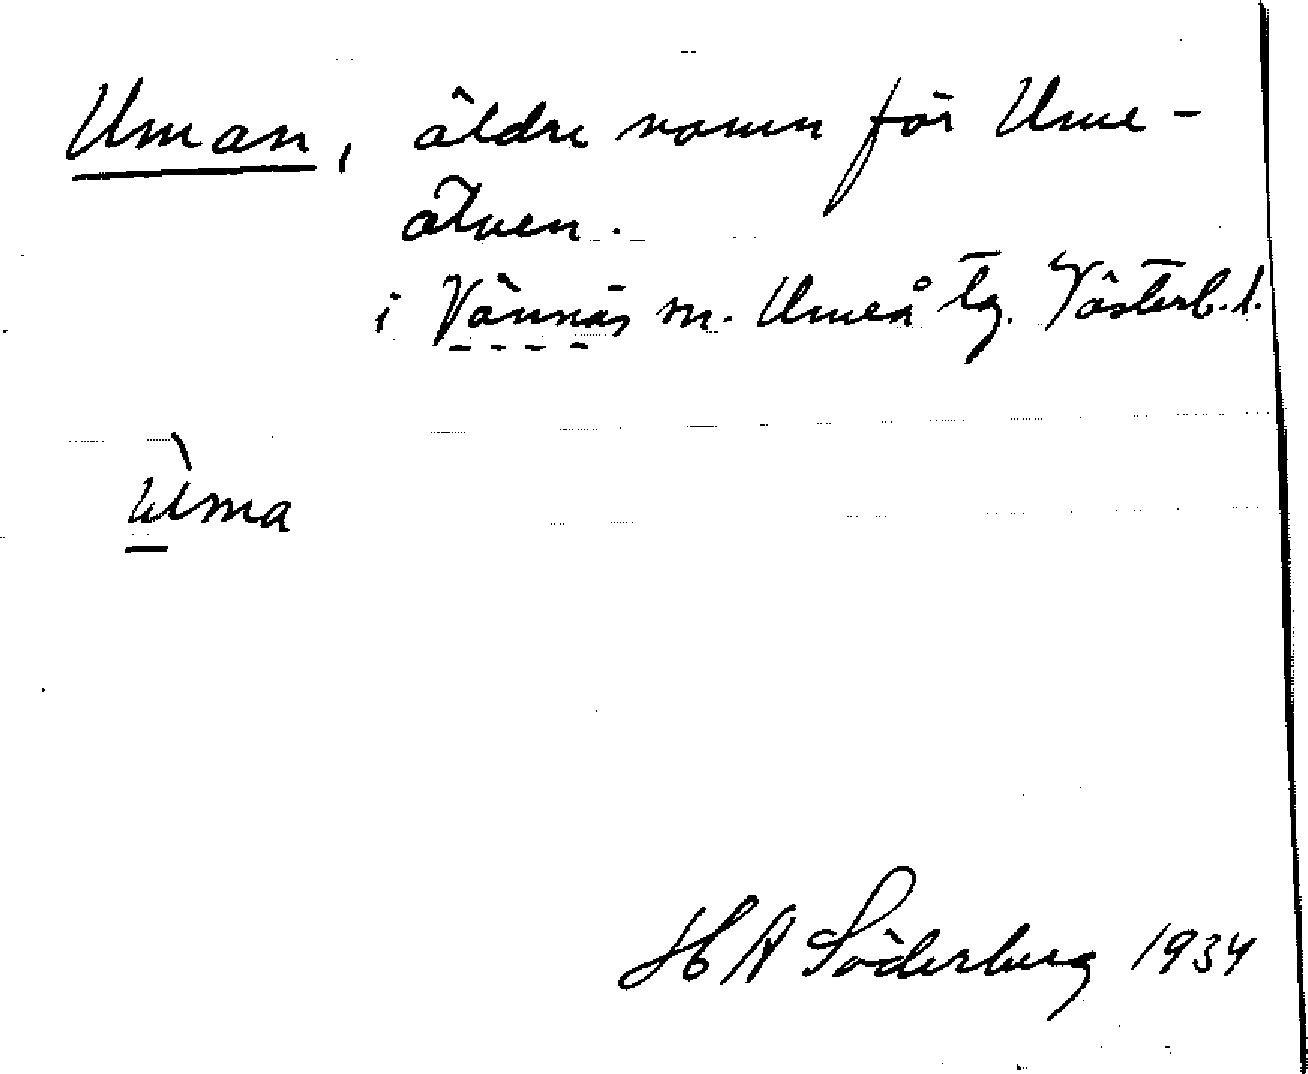 Uman, äldre namn för Ume-
älven.
i Vännäs sn. Umeå tg. Västerb. l.
ùma
H A Söderberg 1934